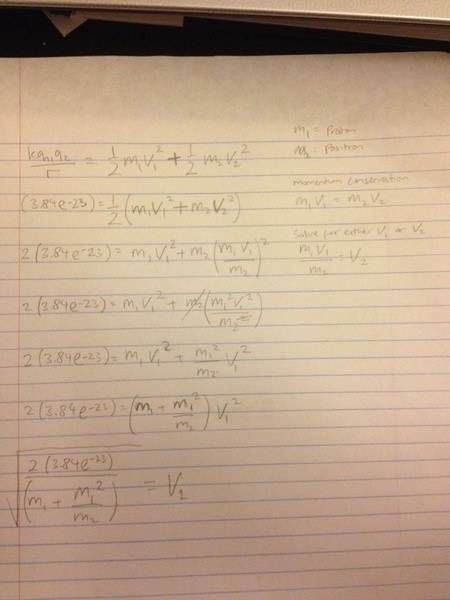 kq₁q₂/r = 1/2 m₁V₁² + 1/2 m₂V₂²
(3.84e-23) = 1/2 (m₁V₁² + m₂V₂²)
2(3.84e-23) = m₁V₁² + m₂(m₁V₁/m₂)²
2(3.84e-23) = m₁V₁² + m₂(m₁²V₁²/m₂²)
2(3.84e-23) = m₁V₁² + m₁²/m₂ V₁²
2(3.84e-23) = (m₁ + m₁²/m₂) V₁²
√(2(3.84e-23)/(m₁ + m₁²/m₂)) = V₁
m₁ = Proton
m₂ = Positron
momentum conservation
m₁V₁ = m₂V₂
Solve for either V₁ or V₂
m₁V₁/m₂ = V₂